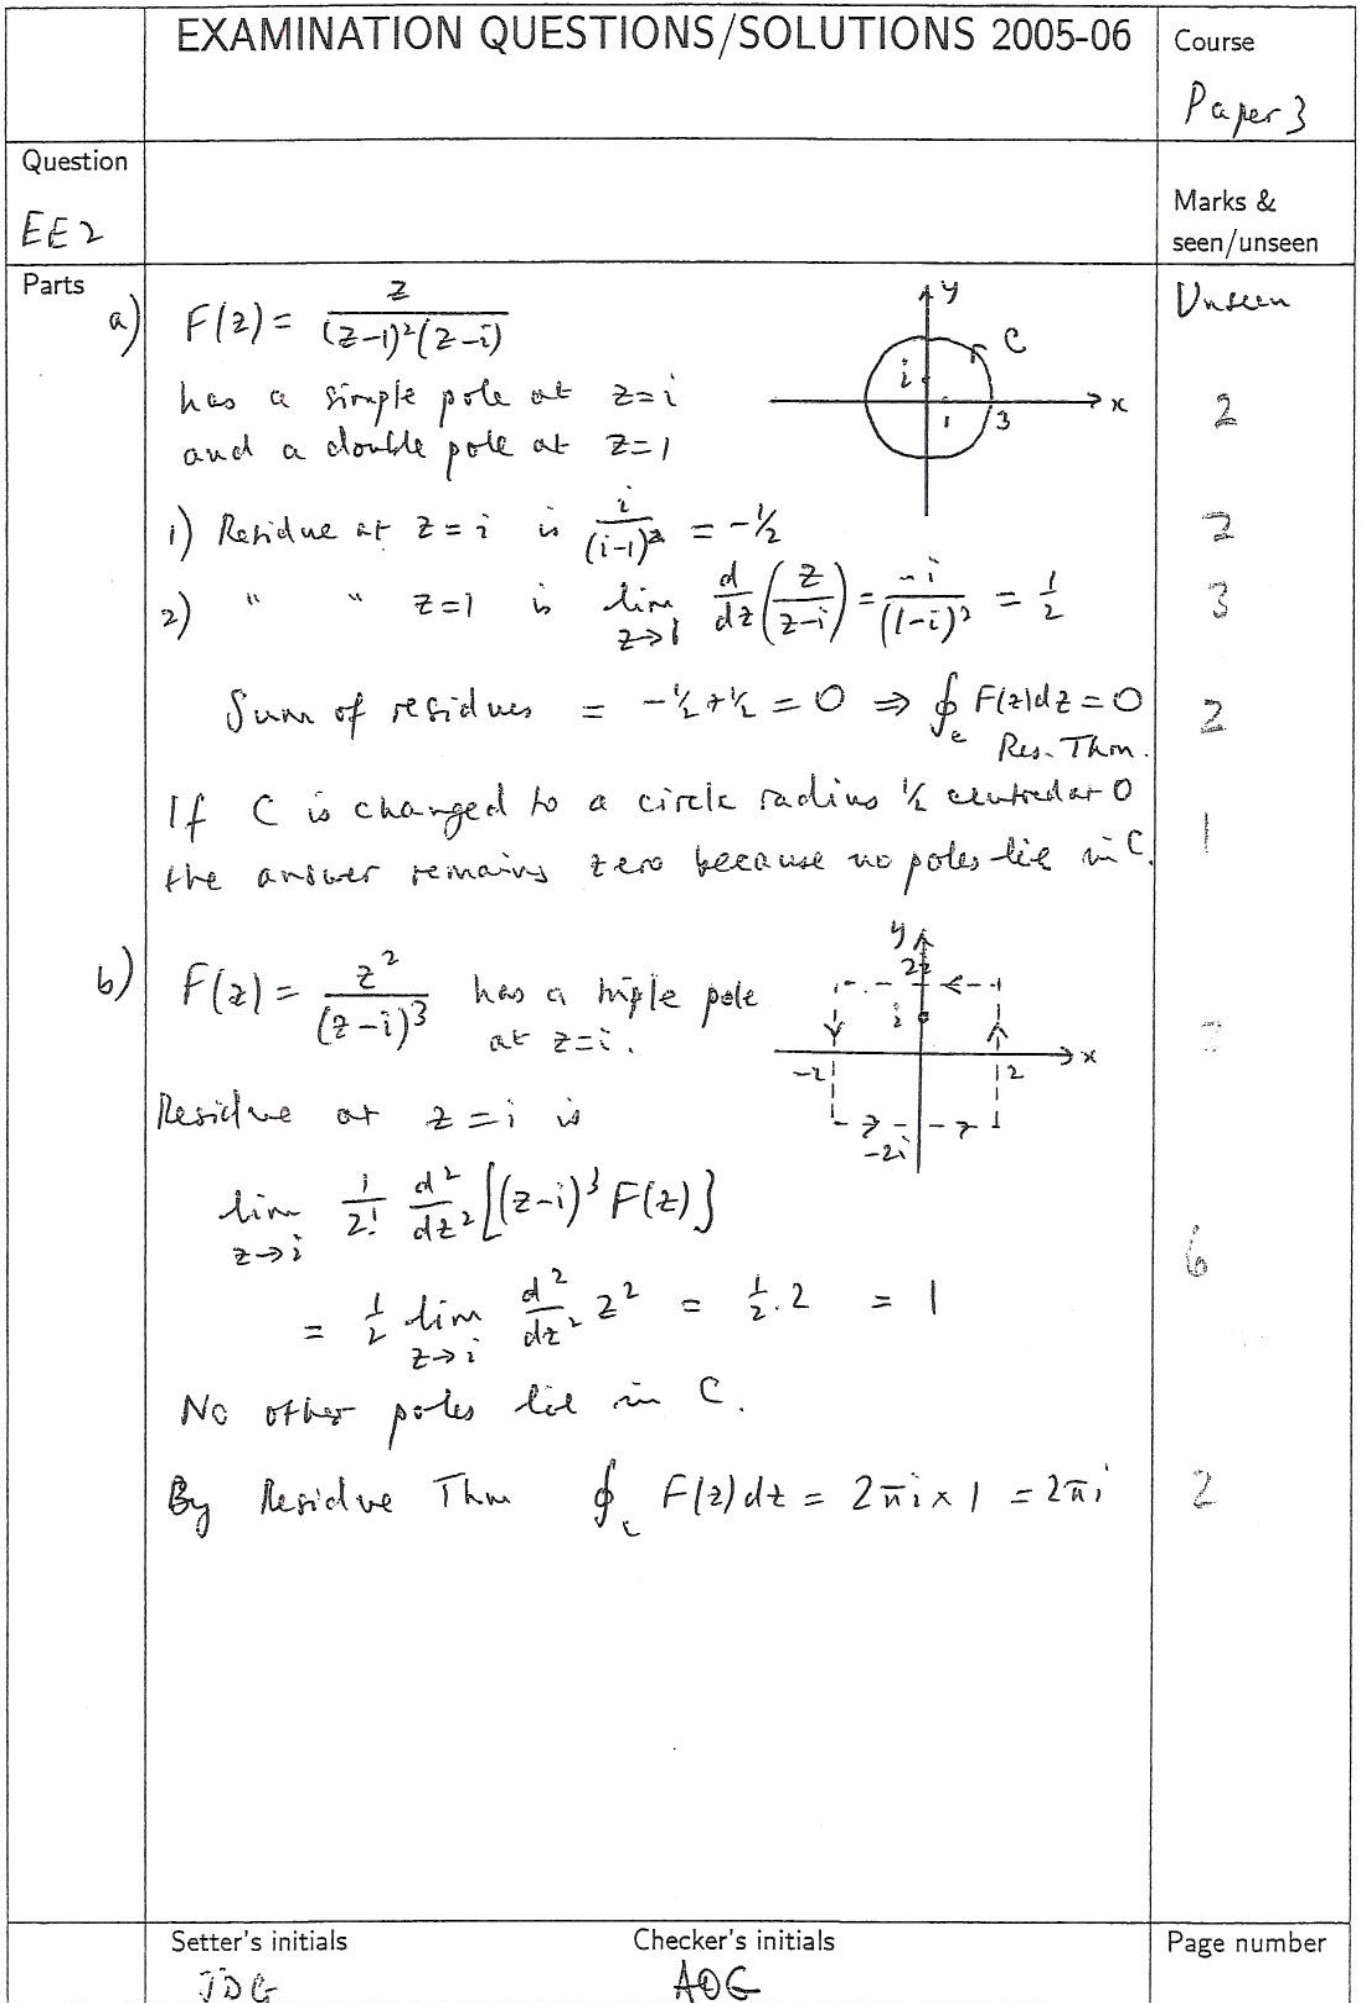 EXAMINATION QUESTIONS/SOLUTIONS 2005-06
Course
Paper 3
Question
EE2
Marks &
seen/unseen
Parts
a)
F(z) = z / (z-1)²(z-i)
Unseen
y
C
i
x
1
3
has a simple pole at z=i
2
and a double pole at z=1
1) Residue at z=i is i/(i-1)² = -½
2
2) " " z=1 is lim z→1 d/dz (z/(z-i)) = -i/(1-i)² = 1/2
3
Sum of residues = -½+½ = 0 ⇒ ∮c F(z)dz = 0
2
Res. Thm.
If C is changed to a circle radius ½ centred at 0
1
the answer remains zero because no poles lie in C.
b)
F(z) = z²/(z-i)³ has a triple pole
at z=i.
y
2i
i
x
-2
2
-2i
Residue at z=i is
lim z→i 1/2! d²/dz² [(z-i)³ F(z)]
6
= 1/2 lim z→i d²/dz² z² = 1/2 . 2 = 1
No other poles lie in C.
By Residue Thm ∮c F(z)dz = 2πi × 1 = 2πi
2
Setter's initials
JDG
Checker's initials
AOG
Page number